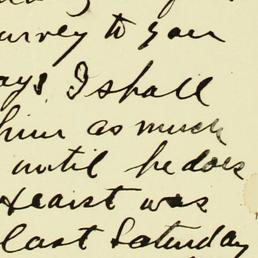 urvey to your
ays, I shall
him as much
until he does
Hearst was
last Saturday